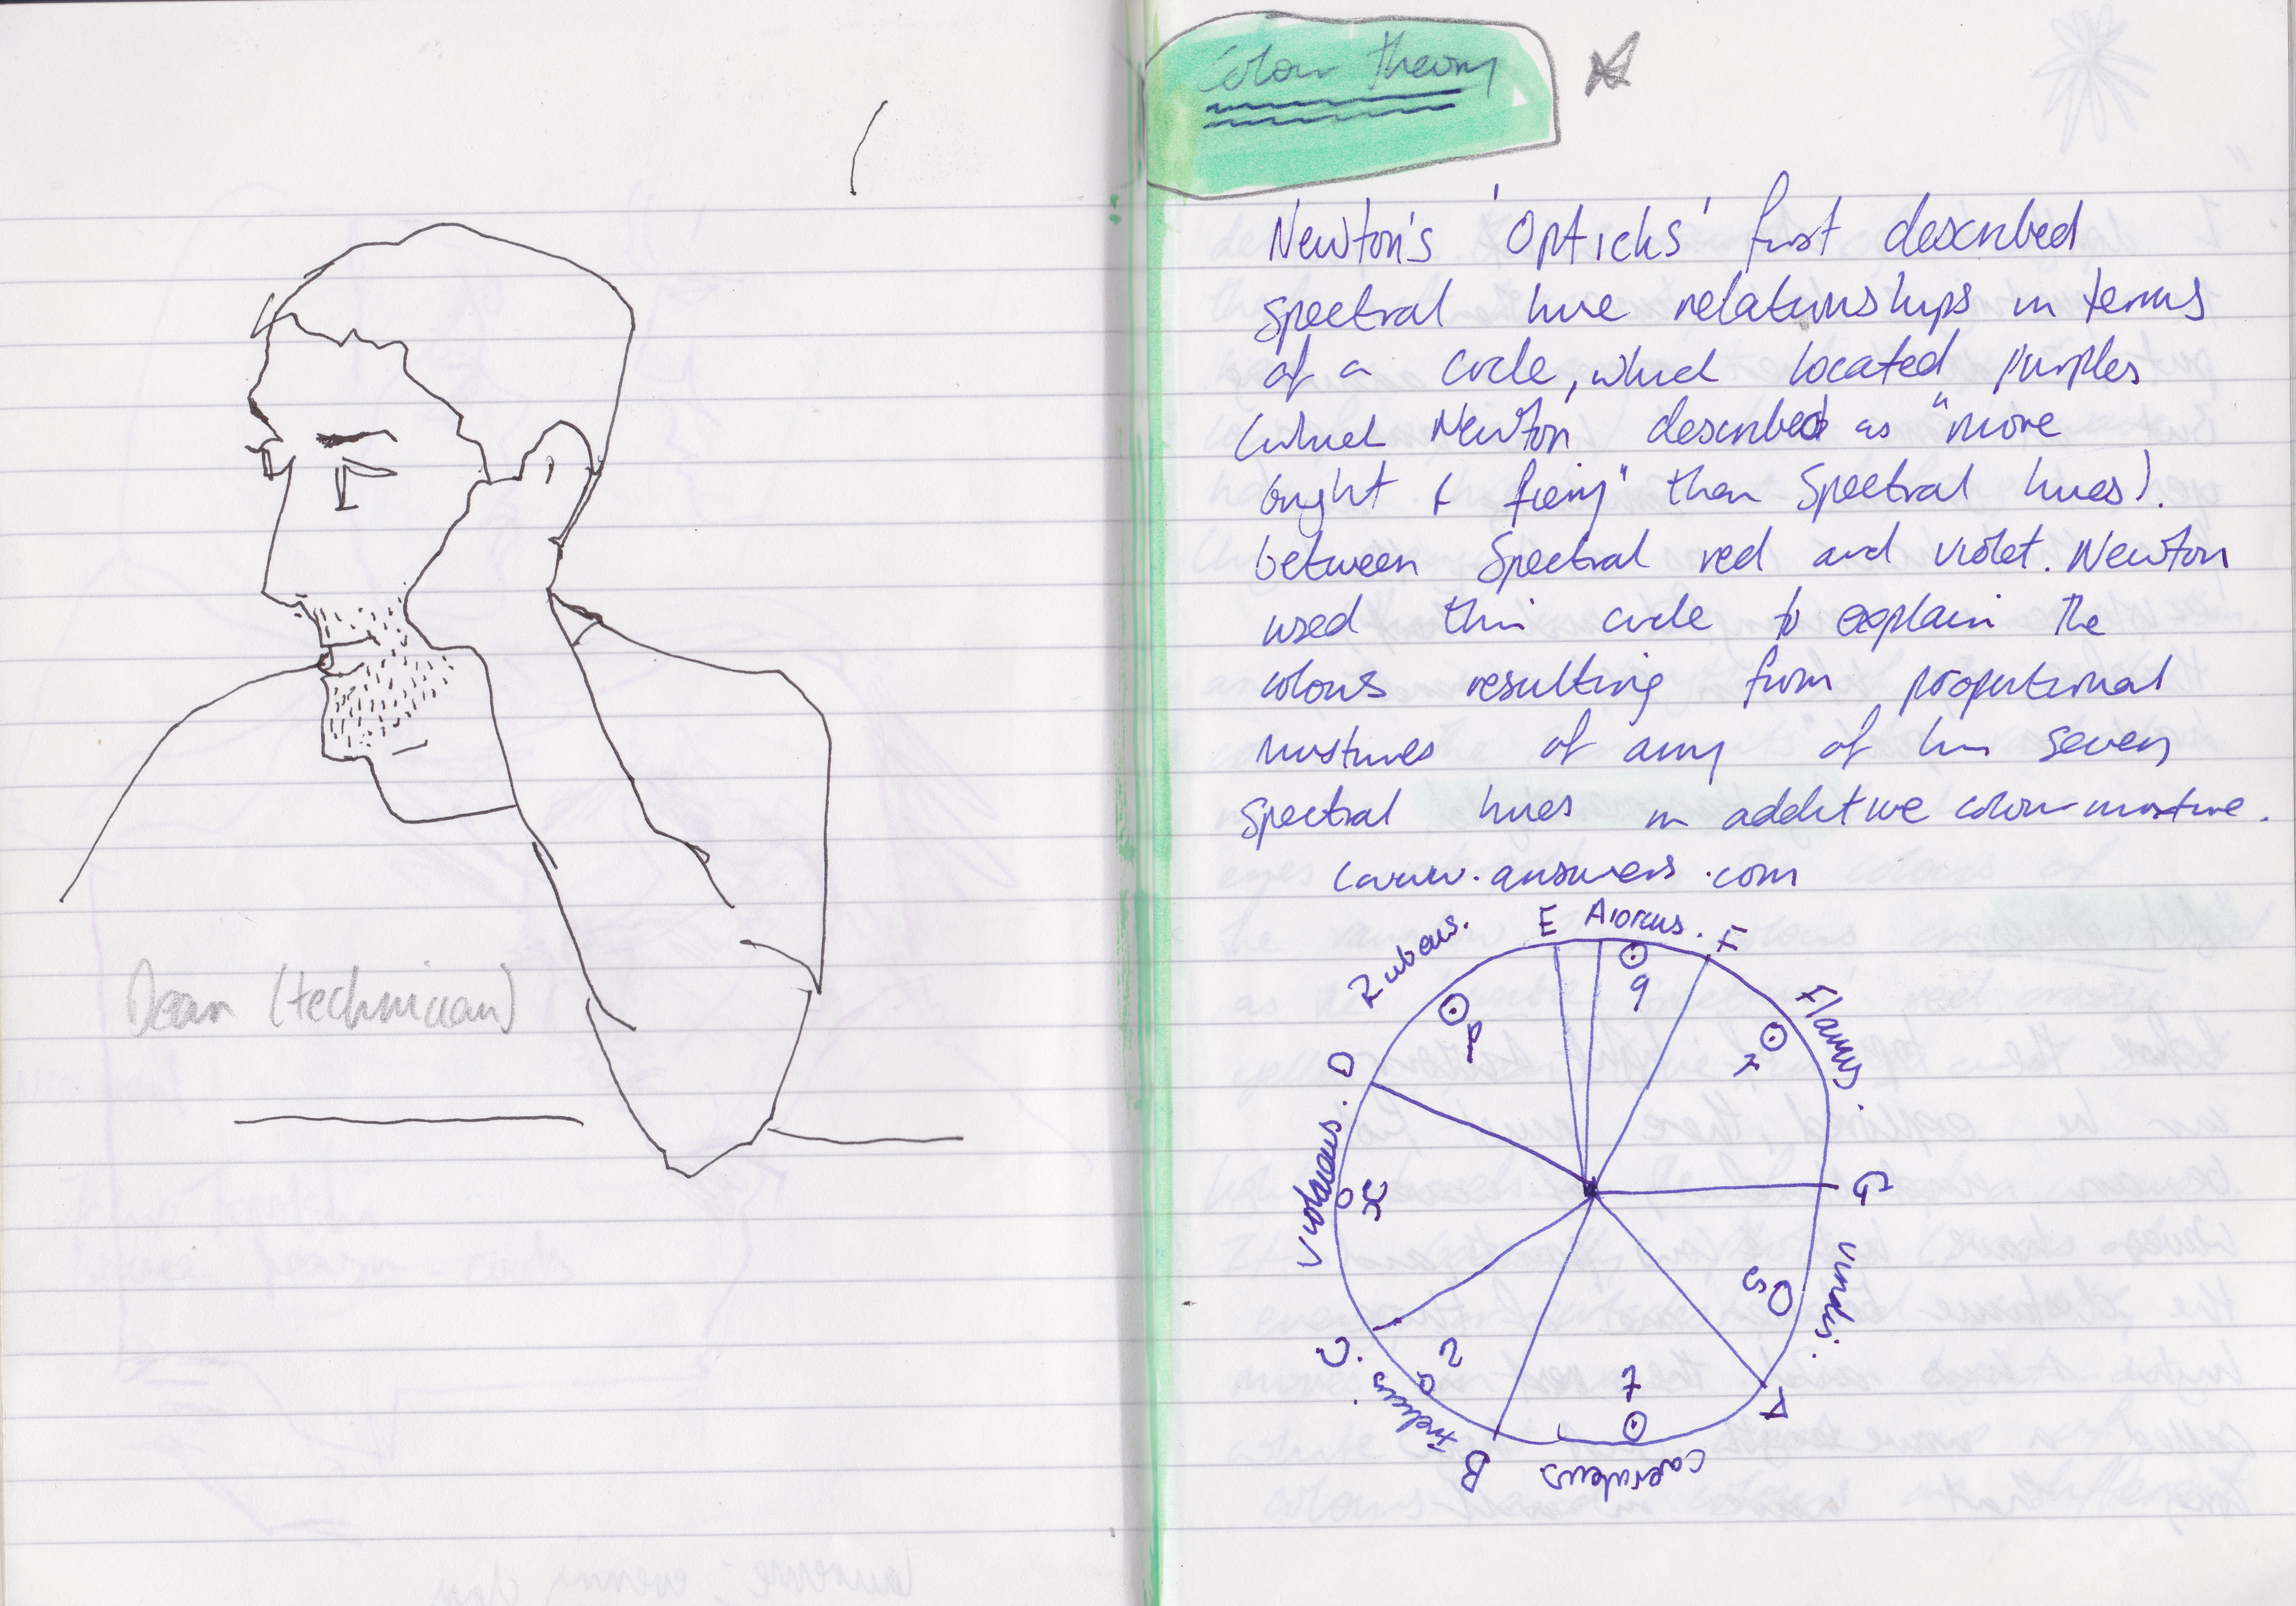 Dean (technician)
Colour Theory
Newton's 'Opticks' first described
spectral hue relationships in terms
of a circle, which located purples
(which Newton described as "more
bright & fiery" than spectral hues).
between spectral red and violet. Newton
used this circle to explain the
colours resulting from proportional
mixtures of any of his seven
spectral hues in additive colour mixture.
(www.answers.com
E Aiorcus. F
Rubeus.
p
q
Flavus.
r
D
G
Violaceus.
x
Viridis.
s
A
C.
Caeruleus
t
B